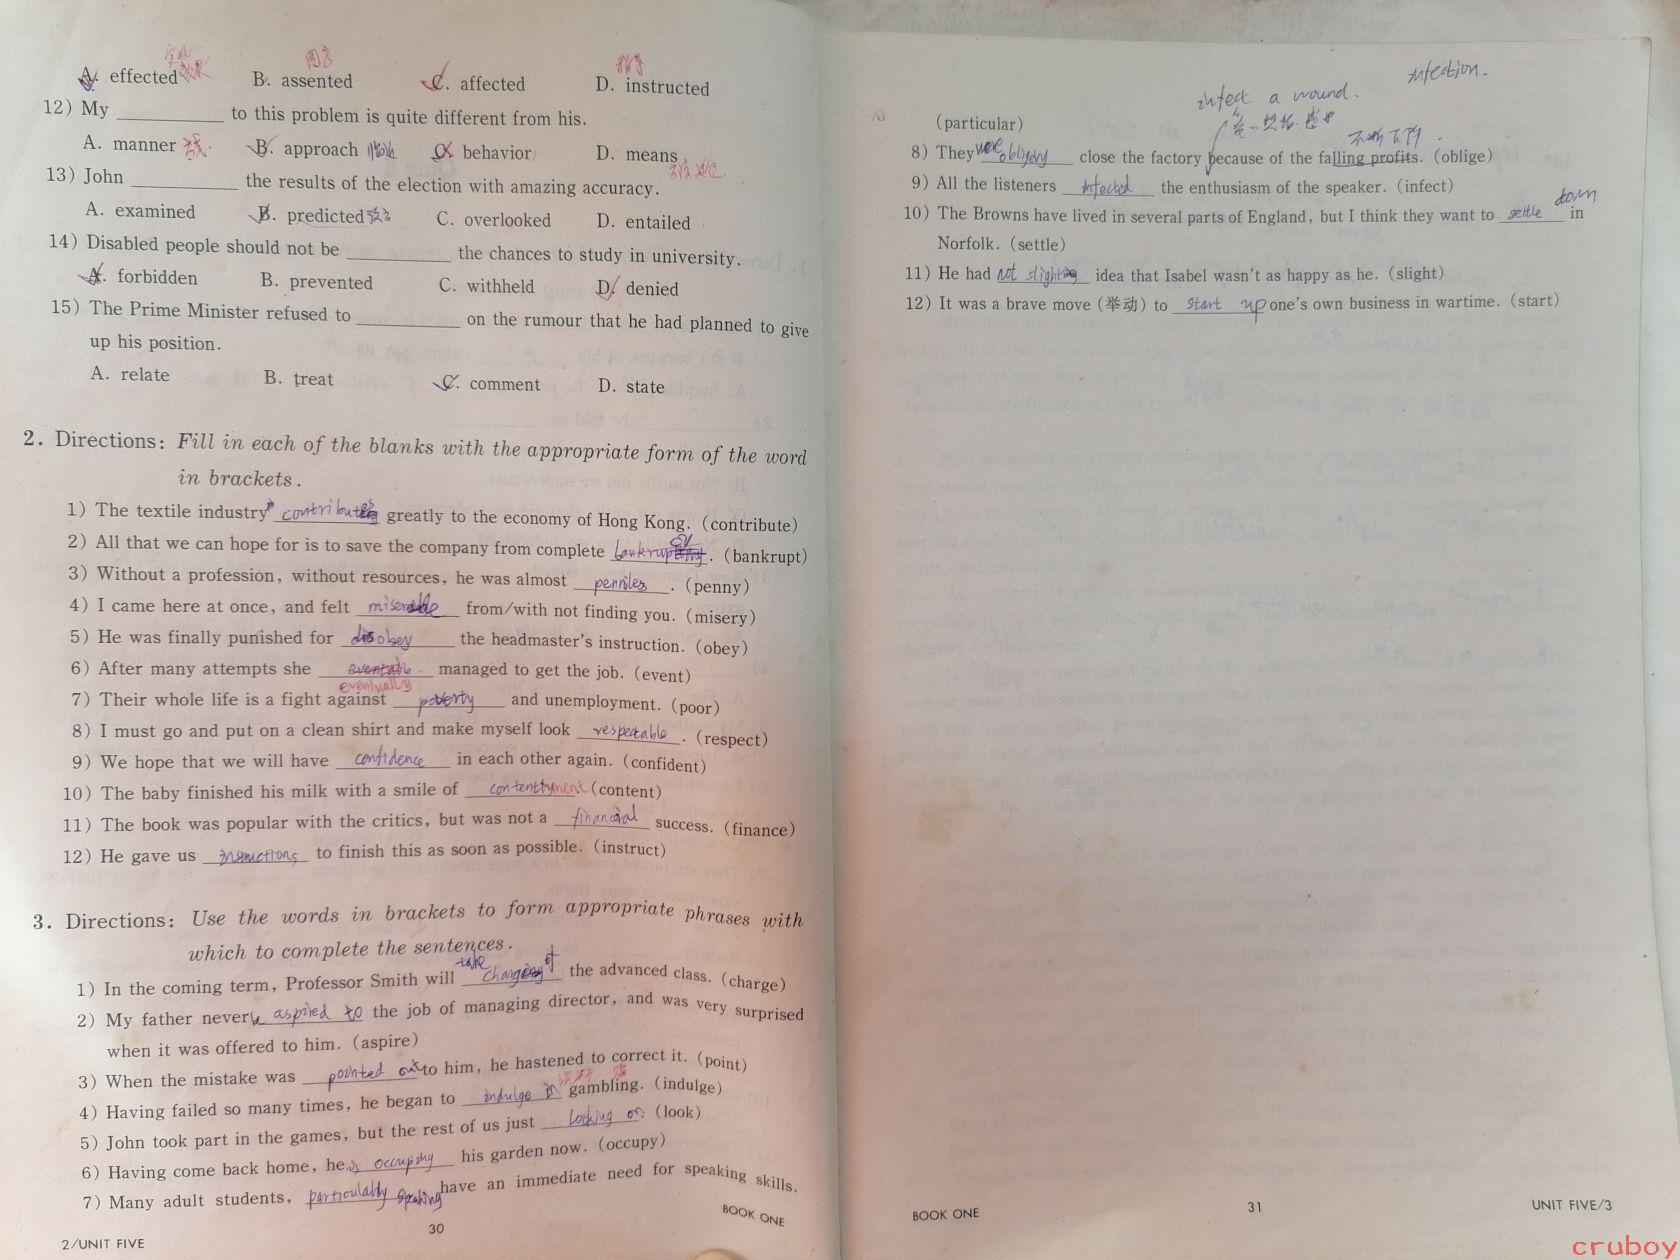 A. effected B. assented C. affected D. instructed
12) My ________ to this problem is quite different from his.
A. manner B. approach C. behavior D. means
13) John ________ the results of the election with amazing accuracy.
A. examined B. predicted C. overlooked D. entailed
14) Disabled people should not be ________ the chances to study in university.
A. forbidden B. prevented C. withheld D. denied
15) The Prime Minister refused to ________ on the rumour that he had planned to give
up his position.
A. relate B. treat C. comment D. state
2. Directions: Fill in each of the blanks with the appropriate form of the word
in brackets.
1) The textile industry contributes greatly to the economy of Hong Kong. (contribute)
2) All that we can hope for is to save the company from complete bankruptcy. (bankrupt)
3) Without a profession, without resources, he was almost penniles. (penny)
4) I came here at once, and felt miserable from/with not finding you. (misery)
5) He was finally punished for disobey the headmaster's instruction. (obey)
6) After many attempts she eventable managed to get the job. (event)
eventually
7) Their whole life is a fight against poverty and unemployment. (poor)
8) I must go and put on a clean shirt and make myself look respectable. (respect)
9) We hope that we will have confidence in each other again. (confident)
10) The baby finished his milk with a smile of contentment (content)
11) The book was popular with the critics, but was not a financial success. (finance)
12) He gave us instructions to finish this as soon as possible. (instruct)
3. Directions: Use the words in brackets to form appropriate phrases with
which to complete the sentences.
1) In the coming term, Professor Smith will take charge of the advanced class. (charge)
2) My father never aspired to the job of managing director, and was very surprised
when it was offered to him. (aspire)
3) When the mistake was pointed out to him, he hastened to correct it. (point)
4) Having failed so many times, he began to indulge in gambling. (indulge)
5) John took part in the games, but the rest of us just looking on. (look)
6) Having come back home, he is occupying his garden now. (occupy)
7) Many adult students, particulably speaking have an immediate need for speaking skills.
BOOK ONE
30
2/UNIT FIVE
infection.
infect a wound.
(particular)
8) They were close the factory because of the falling profits. (oblige)
9) All the listeners infected the enthusiasm of the speaker. (infect)
10) The Browns have lived in several parts of England, but I think they want to settle down in
Norfolk. (settle)
11) He had not idea that Isabel wasn't as happy as he. (slight)
12) It was a brave move (举动) to start up one's own business in wartime. (start)
BOOK ONE
31
UNIT FIVE/3
cruboy